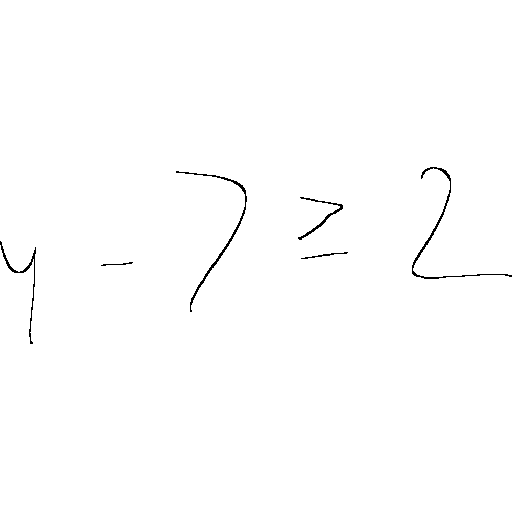 y - 7 ≥ 2